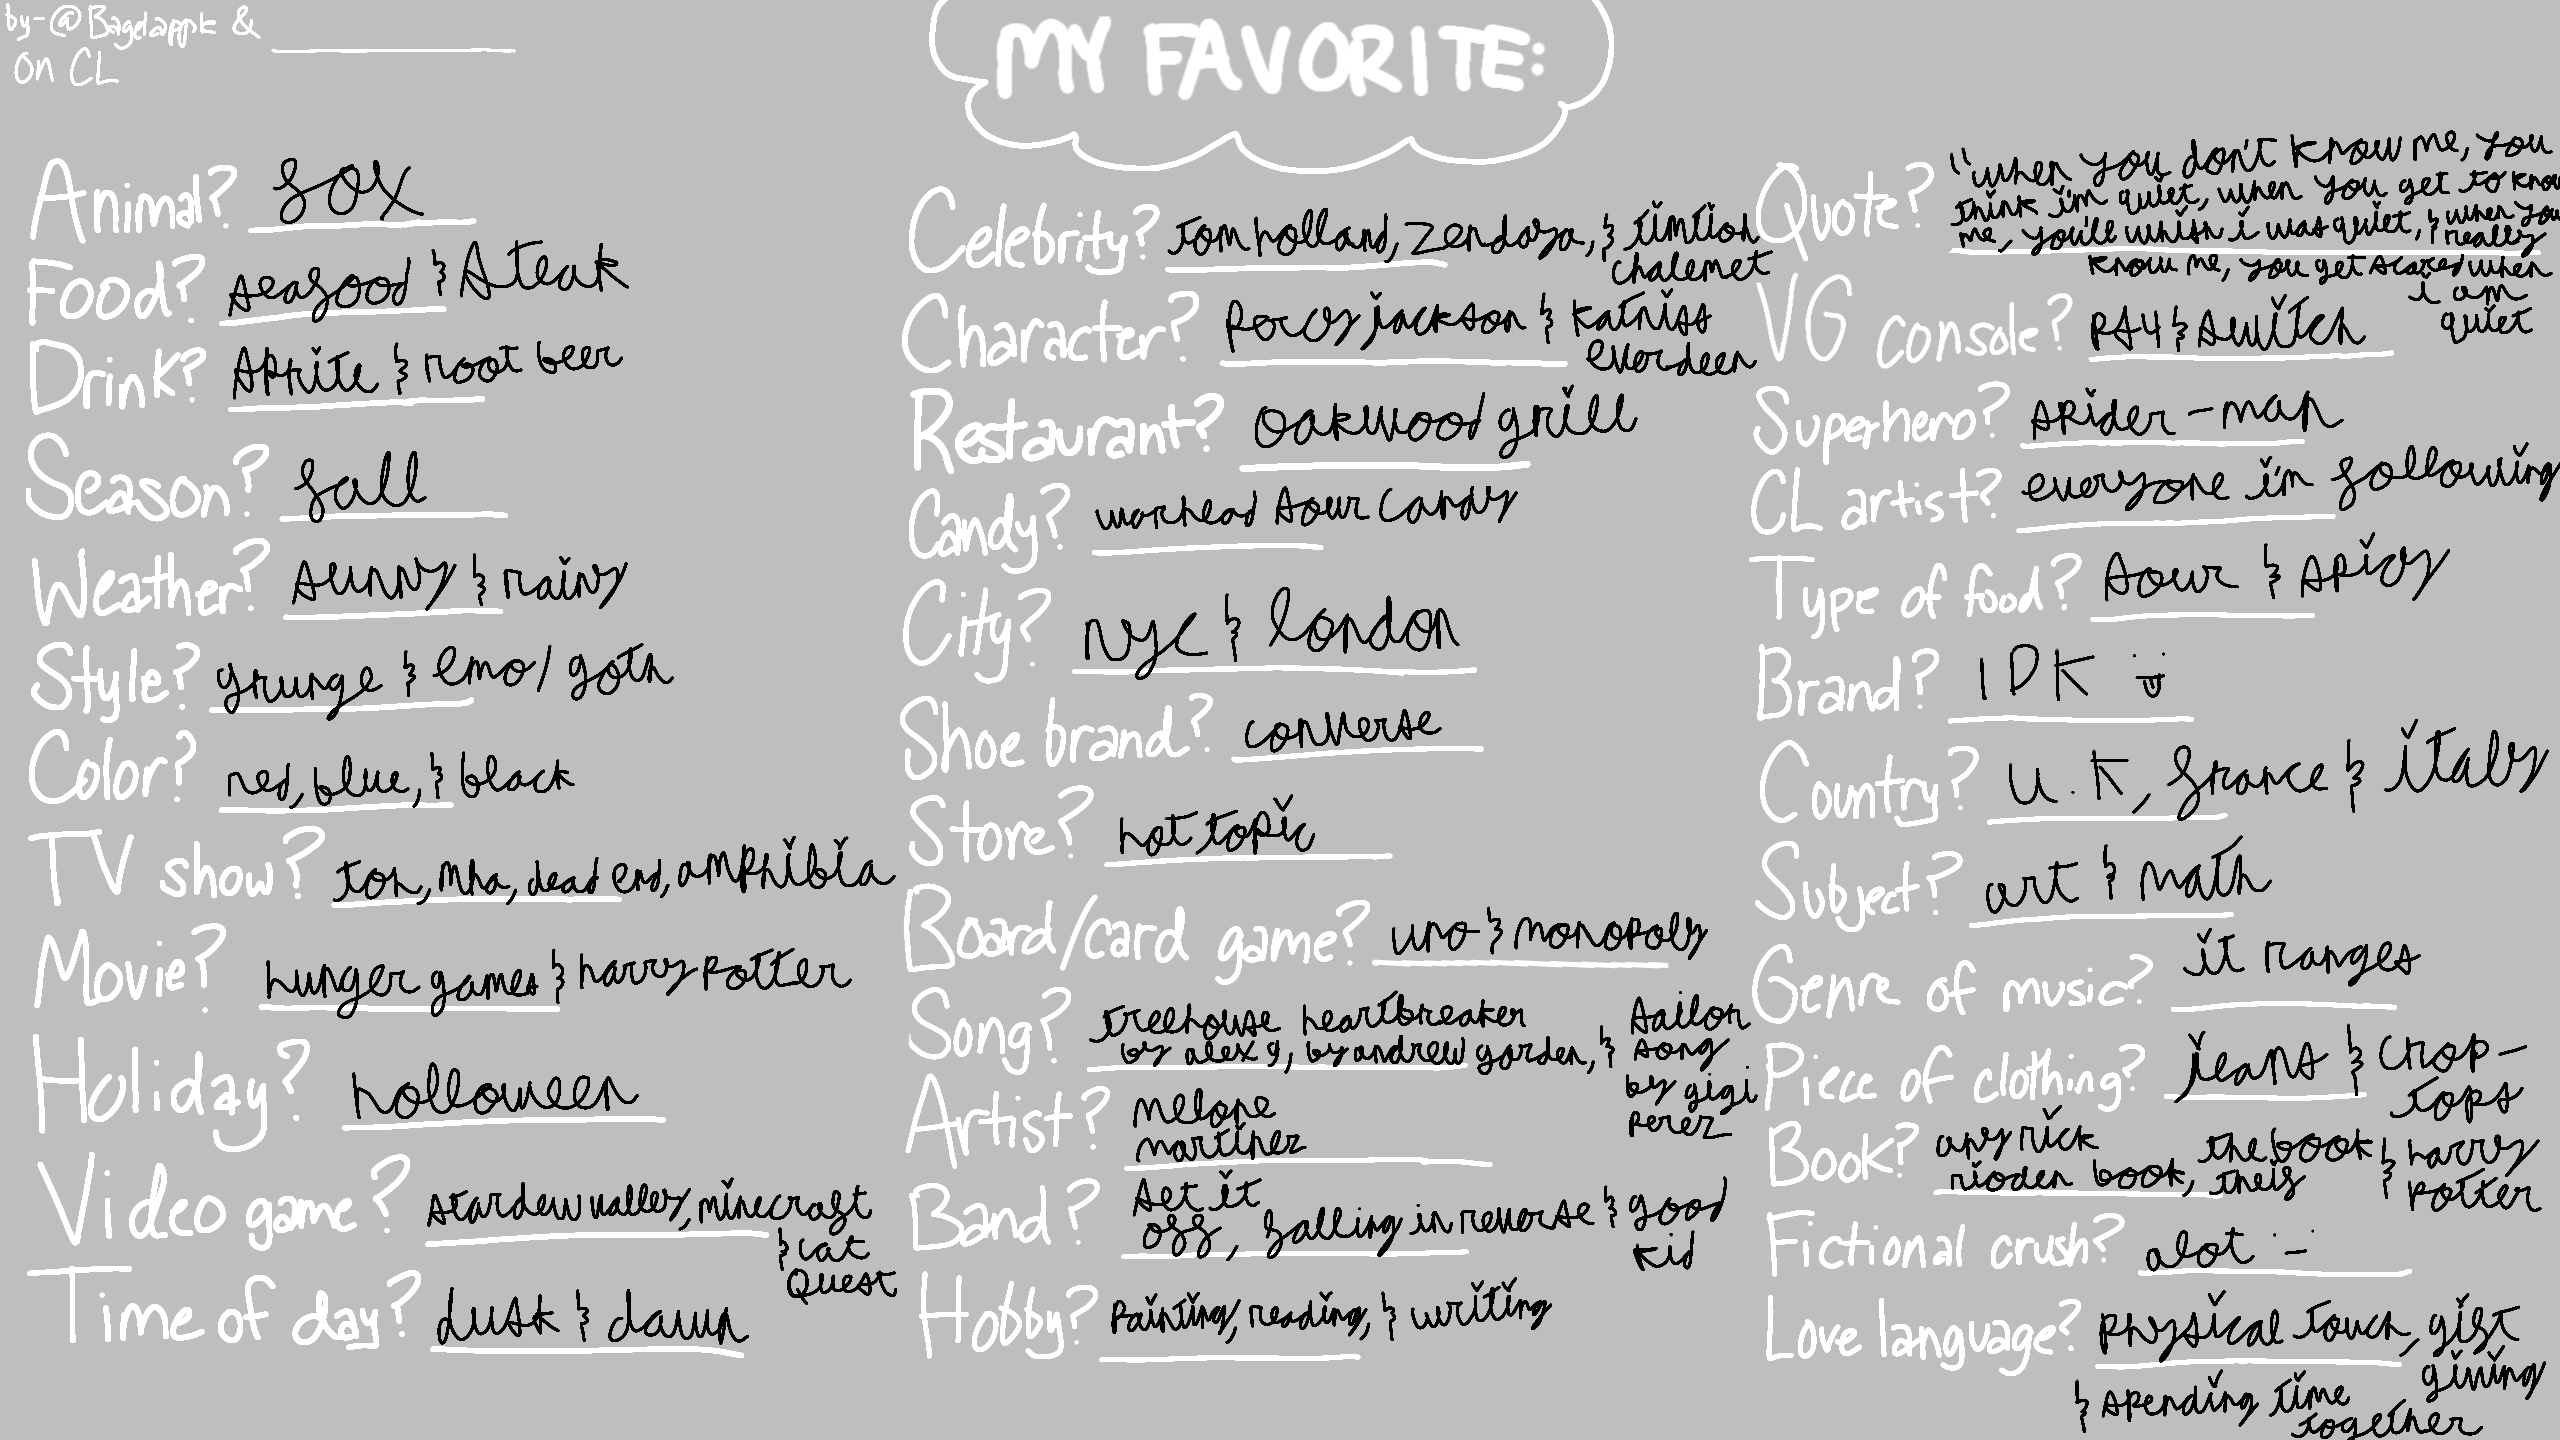 by-@Bagelapple &
on CL
MY FAVORITE:
Animal? fox
Food? seafood & steak
Drink? sprite & root beer
Season? fall
Weather? sunny & rainy
Style? grunge & emo/goth
Color? red, blue, & black
TV show? toh, mha, dead end, amphibia
Movie? hunger games & harry potter
Holiday? holloween
Video game? stardew valley, minecraft
& cat
Quest
Time of day? dusk & dawn
Celebrity? tom holland, zendaya, & timtioh
chalemet
Character? percy jackson & katniss
everdeen
Restaurant? oakwood grill
Candy? warhead sour candy
City? nyc & london
Shoe brand? converse
Store? hot topic
Board/card game? uno & monopoly
Song? treehouse heartbreaker
by alex g, by andrew garden, &
sailor
song
by gigi
perez
Artist? melone
martinez
Band? set it
off, falling in reverse & good
kid
Hobby? painting, reading, & writing
Quote? "when you don't know me, you
think i'm quiet, when you get to know
me, you'll whish i was quiet, & when you
really
know me, you get scared when
i am
quiet
VG console? PS4 & switch
Superhero? spider-man
CL artist? everyone i'm following
Type of food? sour & spicy
Brand? IDK
Country? U.K, france & italy
Subject? art & math
Genre of music? it ranges
Piece of clothing? jeans & crop-
tops
Book? any rick
rioden book, the book
theif & harry
potter
Fictional crush? alot
Love language? physical touch, gift
giving
& spending time
together